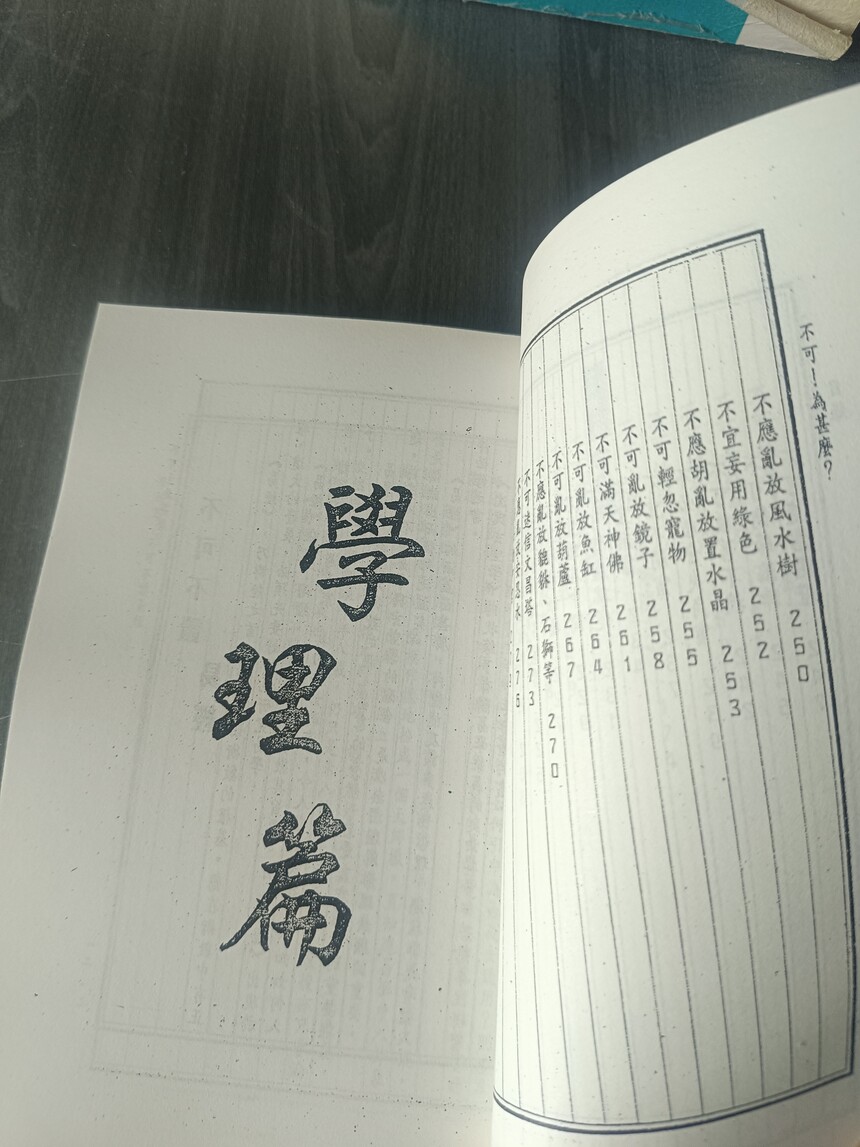 不可！為甚麼？
不應亂放風水樹 250
不宜妄用綠色 252
不應胡亂放置水晶 253
不可輕忽寵物 255
不可亂放鏡子 258
不可滿天神佛 261
不可亂放魚缸 264
不可亂放葫蘆 267
不應亂放貔貅、石獅等 270
不可迷信文昌塔 273
水 276
學理篇